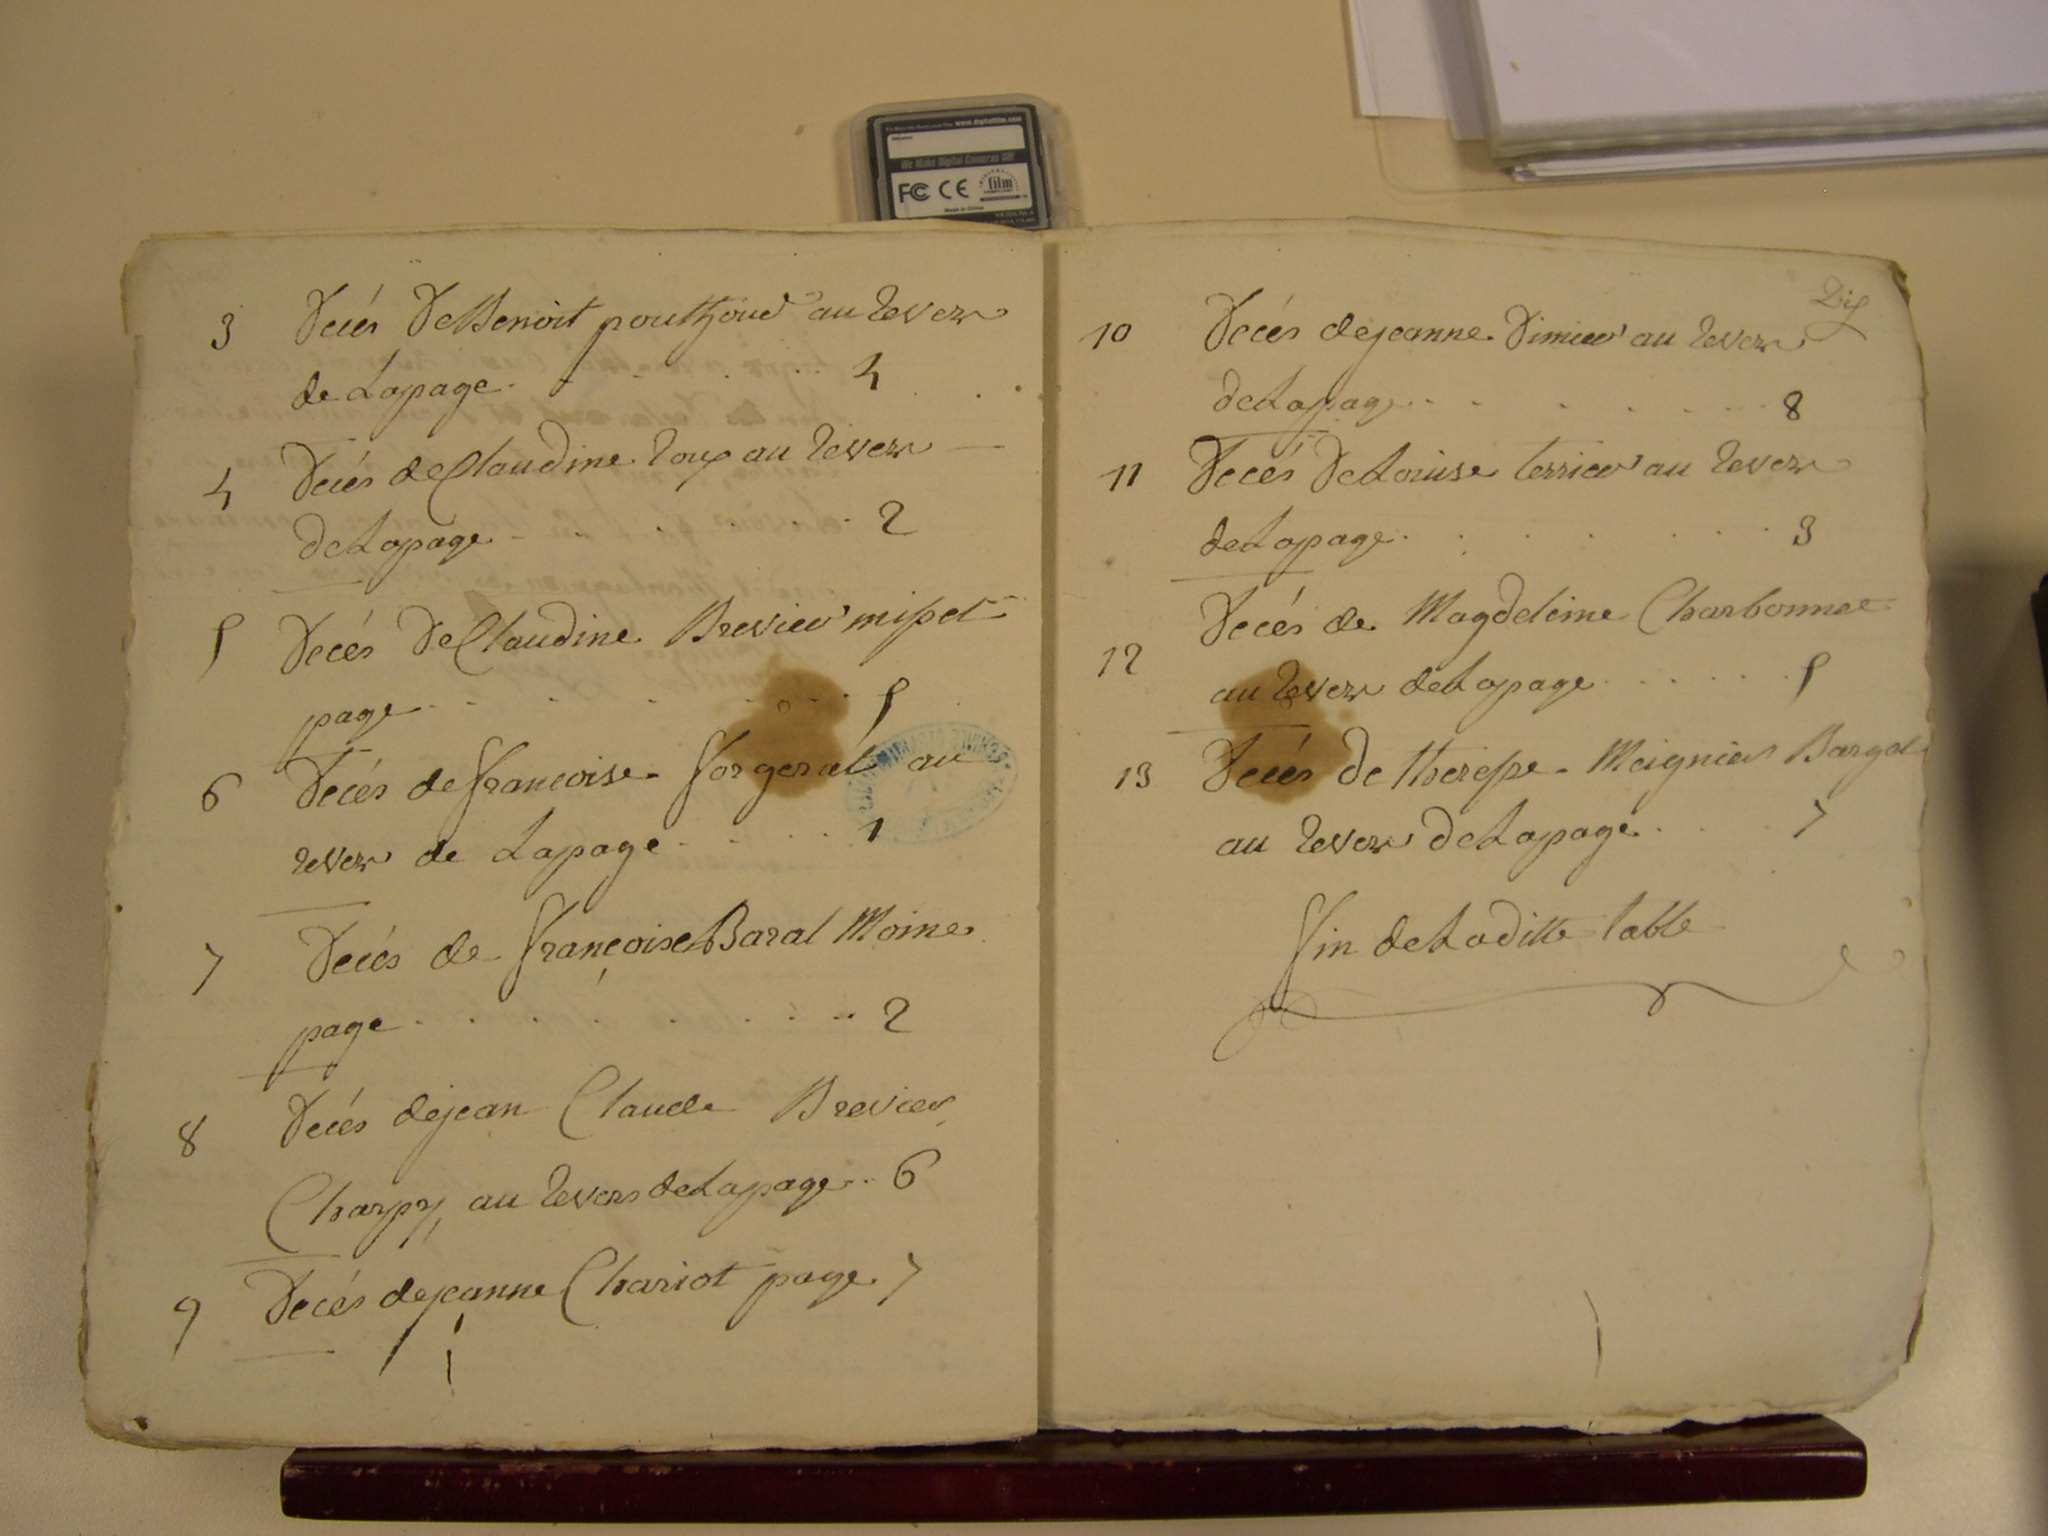 We Make Digital Cameras GO!
FC CE film
3 Decés De Benoit pouthoud au Revers
de Lapage 4
4 Decés de Claudine Roux au Revers
de Lapage 2
5 Decés De Claudine Brevier
page 5
6 Decés de francoise forgeral au
revers de Lapage 1
7 Decés de françoise Baral Moine
page 2
8 Decés de jean Claude Brevier
Charpy au Revers de Lapage 6
9 Decés de jeanne Chariot page 7
Dix
10 Decés de jeanne Dimier au Revers
de Lapage 8
11 Decés De Louise terrier au Revers
de Lapage 3
12 Decés de Magdeleine Charbonnet
au Revers de Lapage 5
13 Decés de therese Meignier Bargat
au Revers de Lapage 7
fin de Laditte table